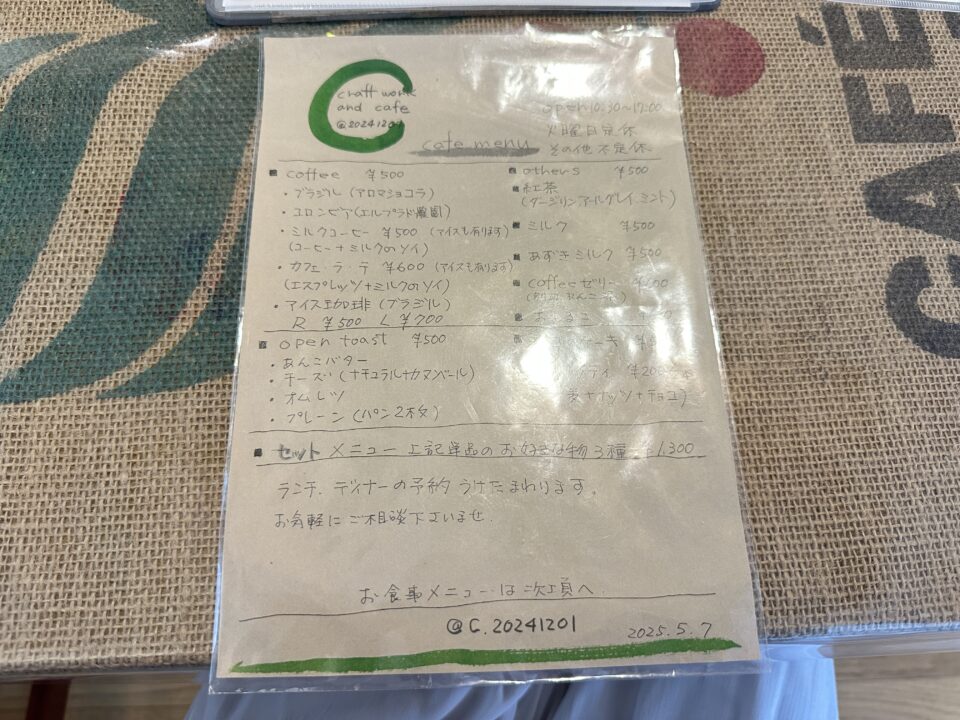 craft work
and cafe
@20241201
cafe menu
open 10:30~17:00
火曜日定休
その他不定休
coffee ¥500
・ブラジル(アロマショコラ)
・コロンビア(エルプラド農園)
・ミルクコーヒー ¥500 (アイスも有ります)
(コーヒー+ミルクorソイ)
・カフェ・ラ・テ ¥600 (アイスも有ります)
(エスプレッソ+ミルクorソイ)
・アイス珈琲(ブラジル)
R ¥500 L ¥700
others ¥500
紅茶
(ダージリン.アールグレイ.ミント)
ミルク ¥500
あずきミルク ¥500
coffeeゼリー
open toast ¥500
・あんこバター
・チーズ(ナチュラル+カマンベール)
・オムレツ
・プレーン(パン2枚)
ーキ
ティ ¥200
麦+ナッツ+チョコ)
セット メニュー 上記単品のお好きな物3種 ¥1,300
ランチ.ディナーの予約うけたまわります。
お気軽にご相談下さいませ.
お食事メニューは次項へ.
@C.20241201
2025.5.7
CAFÉ